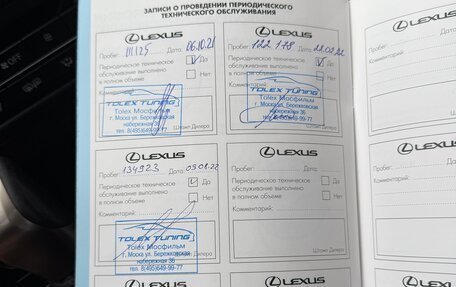 ЗАПИСИ О ПРОВЕДЕНИИ ПЕРИОДИЧЕСКОГО
ТЕХНИЧЕСКОГО ОБСЛУЖИВАНИЯ
LEXUS
Пробег: 111125 Дата: 06.10.21
Периодическое техническое Да
обслуживание выполнено
в полном объеме Нет
Комментарий:
TOLEX TUNING
Tolex Мосфильм
г. Мосва ул. Бережковская
набережная 36
тел. 8(495)649-99-77
Штамп Дилера
LEXUS
Пробег: 122 178 Дата:
Периодическое техническое Да
обслуживание выполнено
в полном объеме Нет
Комментарий:
TOLEX TUNING
Tolex Мосфильм
г. Мосва ул. Бережковская
набережная 36
тел. 8(495)649-99-77
Штамп Дилера
LEXUS
Пробег: 134923 Дата: 09.01.22
Периодическое техническое Да
обслуживание выполнено
в полном объеме Нет
Комментарий:
TOLEX TUNING
Tolex Мосфильм
г. Мосва ул. Бережковская
набережная 36
тел. 8(495)649-99-77
LEXUS
Пробег: Дата:
Периодическое техническое Да
обслуживание выполнено
в полном объеме Нет
Комментарий:
Штамп Дилера
LEXUS
LEXUS
Пробег:
Периодическое
обслуживание
в полном объеме
Комментарий:
Пробег:
Периодическое
обслуживание
в полном
Комментарий: